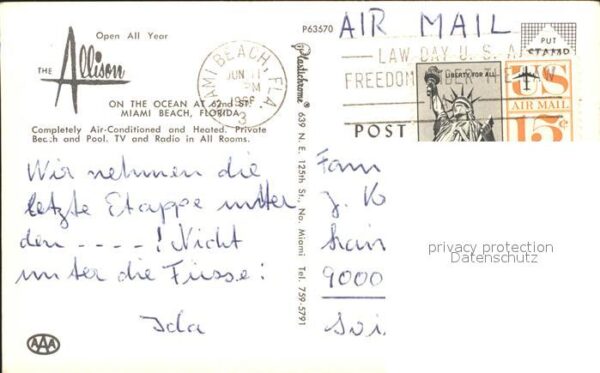 Open All Year
THE Allison
ON THE OCEAN AT 62nd ST.
MIAMI BEACH, FLORIDA
Completely Air-Conditioned and Heated. Private
Beach and Pool. TV and Radio in All Rooms.
Wir nehmen die
letzte Etappe unter
den - - - - ! Nicht
unter die Füsse!
Ida
AAA
MIAMI BEACH, FLA.
JUN 11
PM
Plastichrome ® 639 N. E. 125th St., No. Miami Tel. 759-5791
P63570
AIR MAIL
PUT
STAMP
LAW DAY U. S. A.
FREEDOM UNDER THE LAW
LIBERTY FOR ALL
US
AIR MAIL
15¢
POST
Fam
J. K
9000
privacy protection
Datenschutz